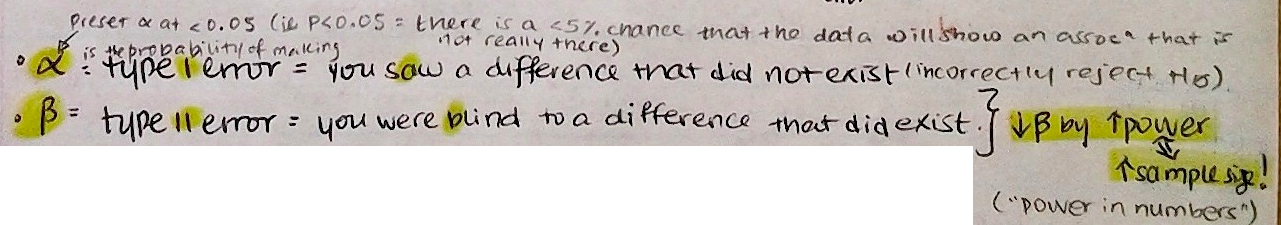 preset α at <0.05 (ie P<0.05 = there is a <5% chance that the data will show an assocⁿ that is
not really there)
is the probability of making
• α = type I error = you saw a difference that did not exist (incorrectly reject H₀)
• β = type II error = you were blind to a difference that did exist. } ↓β by ↑power
↑sample size!
("power in numbers")